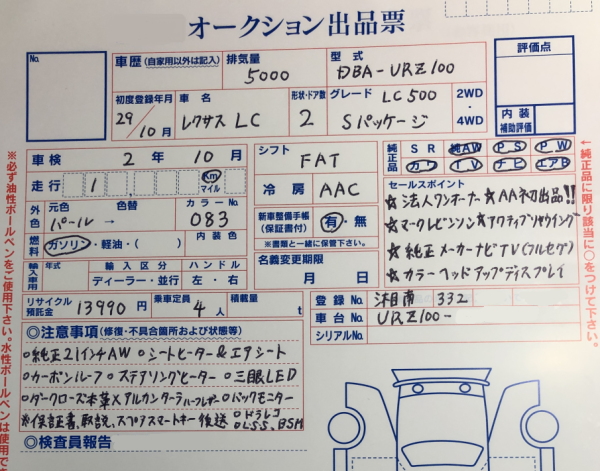 オークション出品票
No.
車歴 (自家用以外は記入)
排気量
5000
型式
DBA-URZ100
評価点
初度登録年月
29/10月
車名
レクサス LC
形状・ドア数
2
グレード
LC500
Sパッケージ
2WD
・
4WD
内装
補助評価
車検 2年 10月
シフト
FAT
純正品
SR 純AW PS PW
カワ TV ナビ エアB
走行 1 Km マイル
冷房 AAC
外色
元色 色替
パール →
カラーNo.
083
新車整備手帳
(保証書付)
有・無
※書類と一緒に保管下さい。
セールスポイント
★法人ワンオーナー ★AA初出品!!
★マークレビンソン ★アクティブリヤウイング
★純正メーカーナビTV(フルセグ)
★カラーヘッドアップディスプレイ
燃料
ガソリン・軽油・( )
内装色
輸入車用
年式
輸入区分
ディーラー・並行
ハンドル
左・右
名義変更期限
月 日
リサイクル預託金
13990円
乗車定員
4人
積載量
t
登録No. 湘南 332
車台No. URZ100-
シリアルNo.
◎注意事項(修復・不具合箇所および状態等)
○純正21インチAW ○シートヒーター&エアシート
○カーボンルーフ ○ステアリングヒーター ○三眼LED
○ダークローズ本革×アルカンターラハーフレザー ○バックモニター
※保証書、取説、スペアスマートキー後送 ○ドラレコ
○LSS、BSM
◎検査員報告
※必ず油性ボールペンをご使用下さい。水性ボールペンは使用で
←純正品に限り該当に○をつけて下さい。